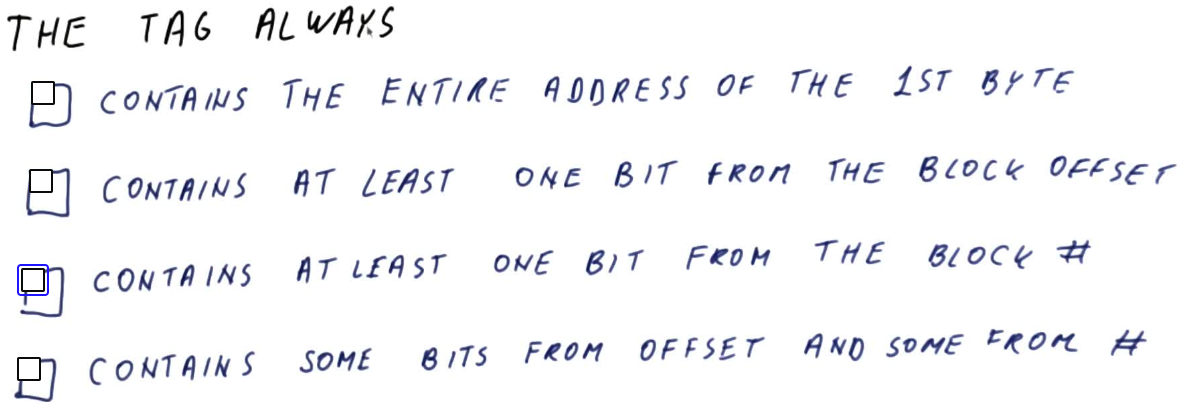 THE TAG ALWAYS
CONTAINS THE ENTIRE ADDRESS OF THE 1ST BYTE
CONTAINS AT LEAST ONE BIT FROM THE BLOCK OFFSET
CONTAINS AT LEAST ONE BIT FROM THE BLOCK #
CONTAINS SOME BITS FROM OFFSET AND SOME FROM #